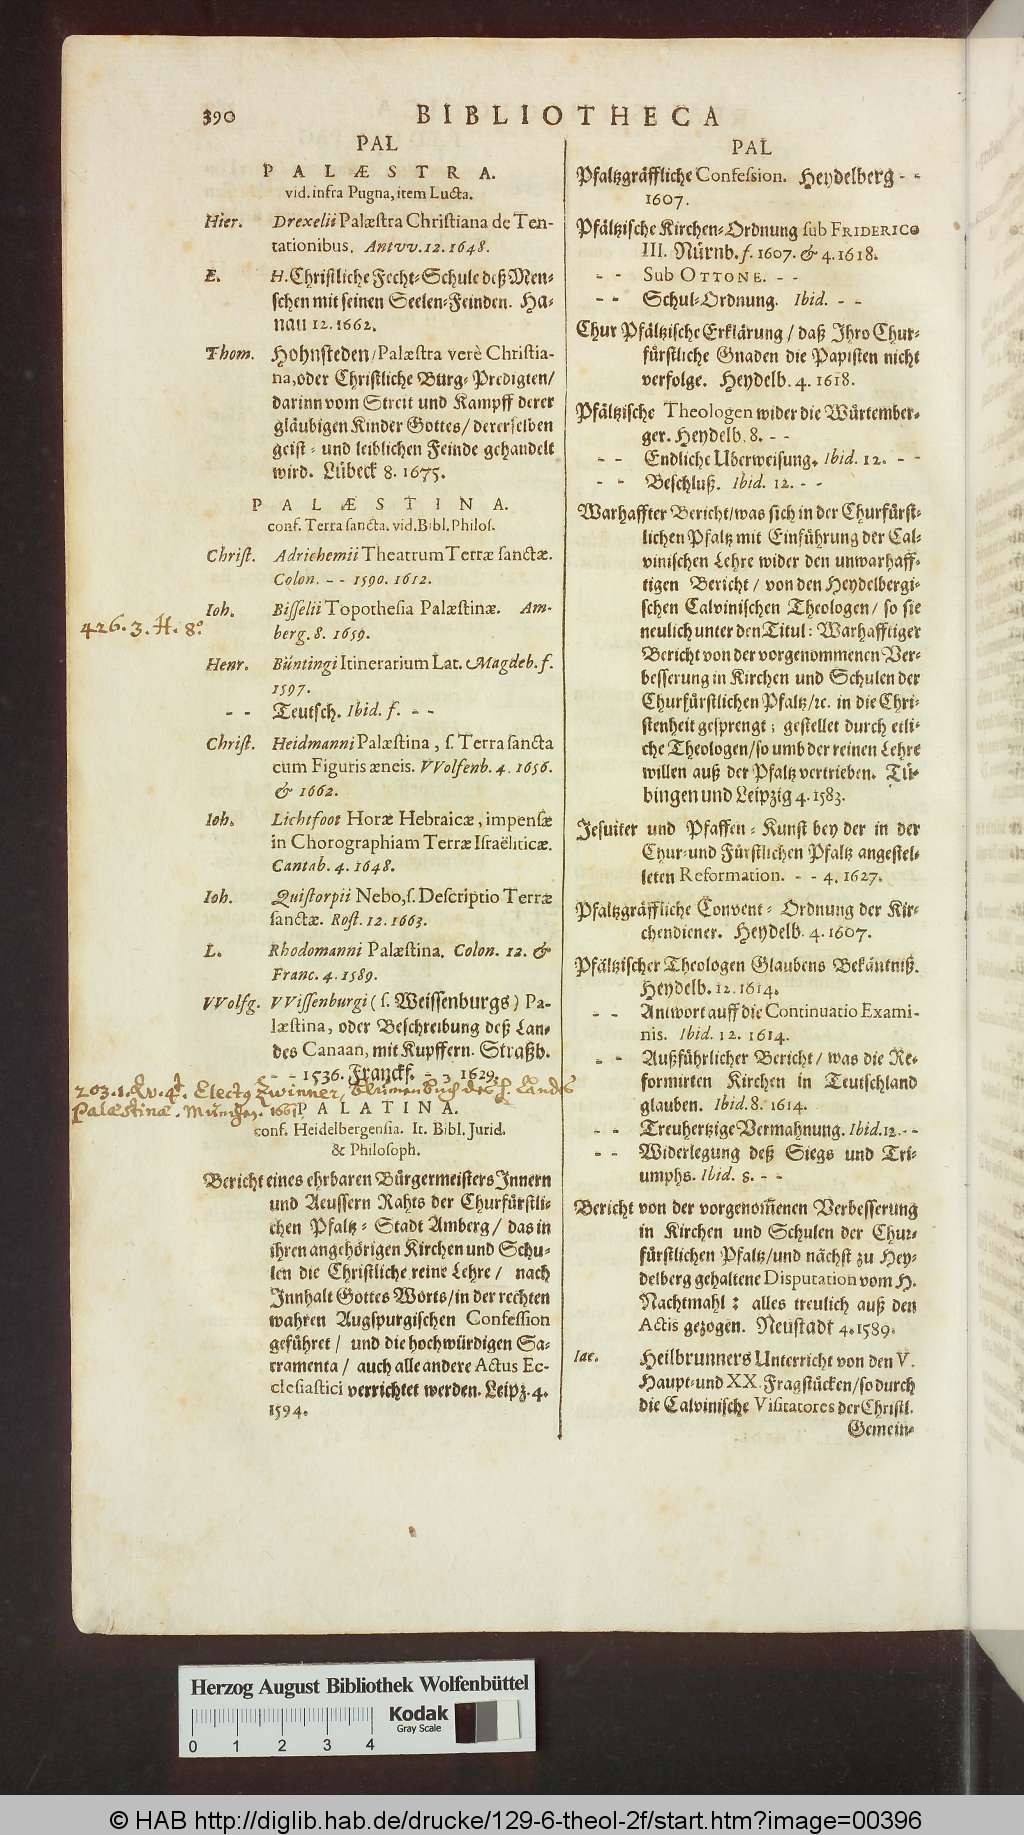 390 BIBLIOTHECA
PAL
PALÆSTRA.
vid. infra Pugna, item Lucta.
Hier. Drexelii Palæſtra Chriſtiana de Ten-
tationibus. Antvv. 12. 1648.
E. H. Chriſtliche Fecht-Schule deß Men-
ſchen mit ſeinen Seelen-Feinden. Ha-
nau 12. 1662.
Thom. Hohnſteden/Palæſtra verè Chriſtia-
na, oder Chriſtliche Burg-Predigten/
darinn vom Streit und Kampff derer
gläubigen Kinder Gottes/dererſelben
geiſt- und leiblichen Feinde gehandelt
wird. Lübeck 8. 1675.
PALÆSTINA.
conf. Terra ſancta. vid. Bibl. Philoſ.
Chriſt. Adrichemii Theatrum Terræ ſanctæ.
Colon. - - 1590. 1612.
Ioh. Biſſelii Topotheſia Palæſtinæ. Am-
426. 3. H. 8º
berg. 8. 1659.
Henr. Büntingi Itinerarium Lat. Magdeb. f.
1597.
- - Teutſch. Ibid. f. - -
Chriſt. Heidmanni Palæſtina, ſ. Terra ſancta
cum Figuris æneis. VVolfenb. 4. 1656.
& 1662.
Ioh. Lichtfoot Horæ Hebraicæ, impenſæ
in Chorographiam Terræ Iſraëliticæ.
Cantab. 4. 1648.
Ioh. Quiſtorpii Nebo, ſ. Deſcriptio Terræ
ſanctæ. Roſt. 12. 1663.
L. Rhodomanni Palæſtina. Colon. 12. &
Franc. 4. 1589.
VVolfg. VViſſenburgi (ſ. Weiſſenburgs) Pa-
læſtina, oder Beſchreibung deß Lan-
des Canaan, mit Kupffern. Straßb.
- - 1536. Franckf. - - 1629.
203. 1. Qv. 4t. Electq Zwinner, Blumenbuch des H. Landes
Palæstinæ. München. 1661.
PALATINA.
conf. Heidelbergenſia. It. Bibl. Jurid.
& Philoſoph.
Bericht eines ehrbaren Bürgermeiſters Innern
und Aeuſſern Rahts der Churfürſtli-
chen Pfaltz-Stadt Amberg/das in
ihren angehörigen Kirchen und Schu-
len die Chriſtliche reine Lehre/ nach
Innhalt Gottes Worts/in der rechten
wahren Augſpurgiſchen Confeſſion
geführet/ und die hochwürdigen Sa-
cramenta/ auch alle andere Actus Ec-
cleſiaſtici verrichtet werden. Leipz. 4.
1594.
PAL
Pfaltzgräffliche Confeſſion. Heydelberg - -
1607.
Pfältziſche Kirchen-Ordnung ſub FRIDERICO
III. Nürnb. f. 1607. & 4. 1618.
- - Sub OTTONE. - -
- - Schul-Ordnung. Ibid. - -
Chur Pfältziſche Erklärung/ daß Ihro Chur-
fürſtliche Gnaden die Papiſten nicht
verfolge. Heydelb. 4. 1618.
Pfältziſche Theologen wider die Würtember-
ger. Heydelb. 8. - -
- - Endliche Uberweiſung. Ibid. 12. - -
- - Beſchluß. Ibid. 12. - -
Warhaffter Bericht/was ſich in der Churfürſt-
lichen Pfaltz mit Einführung der Cal-
viniſchen Lehre wider den unwarhaff-
tigen Bericht/ von den Heydelbergi-
ſchen Calviniſchen Theologen/ ſo ſie
neulich unter den Titul: Warhafftiger
Bericht von der vorgenommenen Ver-
beſſerung in Kirchen und Schulen der
Churfürſtlichen Pfaltz/ꝛc. in die Chri-
ſtenheit geſprengt; geſtellet durch etli-
che Theologen/ſo umb der reinen Lehre
willen auß der Pfaltz vertrieben. Tü-
bingen und Leipzig 4. 1583.
Jeſuiter und Pfaffen-Kunſt bey der in der
Chur- und Fürſtlichen Pfaltz angeſtel-
leten Reformation. - - 4. 1627.
Pfaltzgräffliche Convent-Ordnung der Kir-
chendiener. Heydelb. 4. 1607.
Pfältziſcher Theologen Glaubens Bekäntniß.
Heydelb. 12. 1614.
- - Antwort auff die Continuatio Exami-
nis. Ibid. 12. 1614.
- - Außführlicher Bericht/ was die Re-
formirten Kirchen in Teutſchland
glauben. Ibid. 8. 1614.
- - Treuhertzige Vermahnung. Ibid. 12. - -
- - Widerlegung deß Siegs und Tri-
umphs. Ibid. 8. - -
Bericht von der vorgenom̃enen Verbeſſerung
in Kirchen und Schulen der Chur-
fürſtlichen Pfaltz/und nächſt zu Hey-
delberg gehaltene Disputation vom H.
Nachtmahl: alles treulich auß den
Actis gezogen. Neuſtadt 4. 1589.
Iac. Heilbrunners Unterricht von den V.
Haupt- und XX. Fragſtücken/ſo durch
die Calviniſche Viſitatores der Chriſtl.
Gemein-
Herzog August Bibliothek Wolfenbüttel
0 1 2 3 4
Kodak
Gray Scale
© HAB http://diglib.hab.de/drucke/129-6-theol-2f/start.htm?image=00396